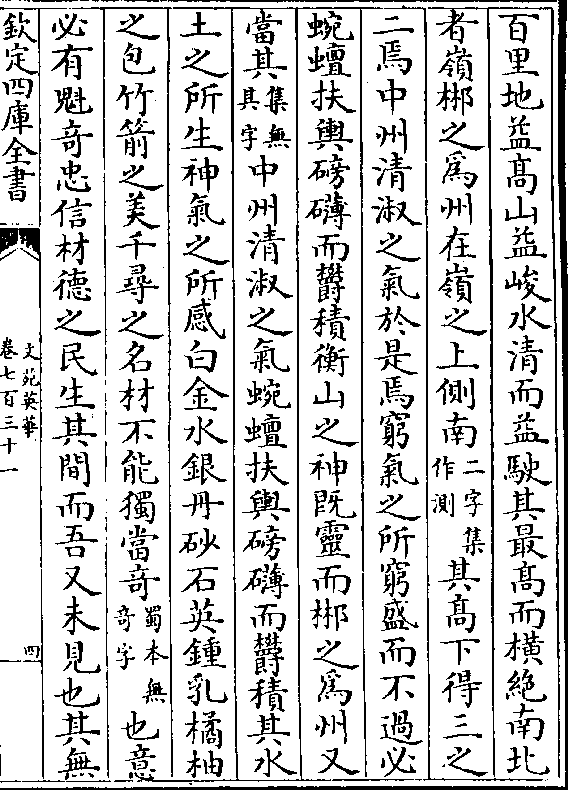 百里地益髙山益峻水清而益駛其最髙而橫絶南北
者嶺郴之爲州在嶺之上側南二字集作測其髙下得三之
二焉中州清淑之氣於是焉窮氣之所窮盛而不過必
蜿蟺扶輿磅礴而鬱積衡山之神旣靈而郴之爲州又
當其集無其字中州清淑之氣蜿蟺扶輿磅礴而鬱積其水
土之所生神氣之所感白金水銀丹砂石英鍾乳橘柚
之包竹箭之美千尋之名材不能獨當奇蜀本無奇字也意
必有魁奇忠信材德之民生其間而吾又未見也其無
欽定四庫全書
文苑英華
卷七百三十一
四